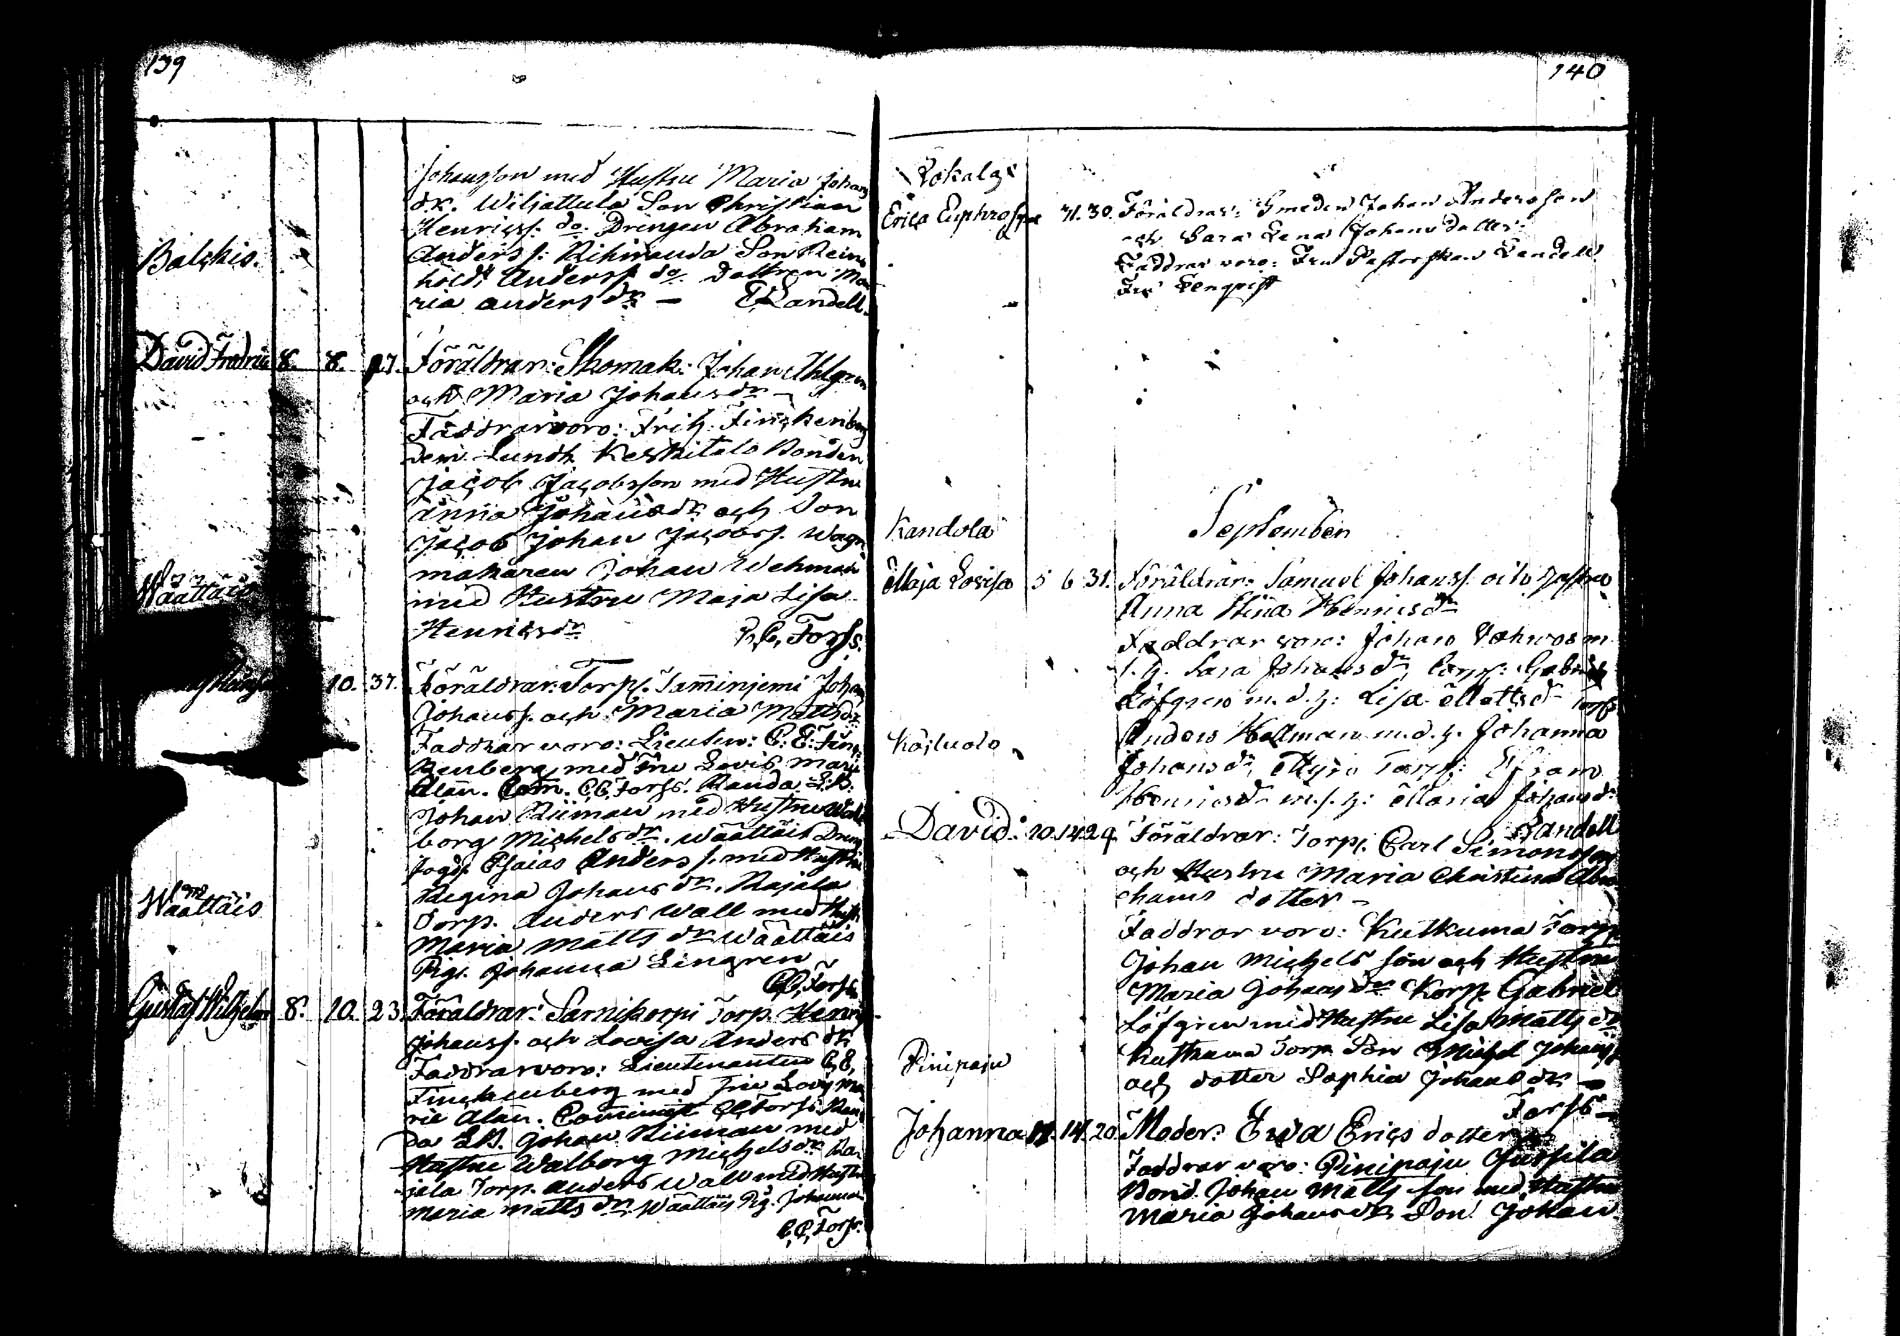 139
Johansson med Hustru Maria Johans
dr. Wiljattula Son Christian
Henrigss. do Drengen Abraham
Balgkis.
Anderss: Rihiranda Son Rein
hold Anderss. do Dottren Ma
ria Anders dr — Landell.
David Fredric 8. 8. 27. Föräldrar: Skomak: Johan Ahlgren
och Maria Johans dr —
Faddrar voro: Fritz Finckenberg
Dem. Lundh Keskitalo Bonden
Jacob Jacobsson med Hustru
Anna Johans dr och Son
Jacob Johan Jacobss. Wagn
Wäättäis
makaren Johan Wehman
med Hustru Maja Lisa
Henrigsdr C.C. Forss.
10. 37. Föräldrar: Torp. Tamminjemi Johan
Johanss. och Maria Mattsdr
Faddrar voro: Lieuten: C: E: Finc
kenberg med Fru Lovis Mari
Alán. Com. C.C. Forss. Randa L.B.
Johan Riiman med Hustru Wal
borg Michelsdr. Wäättäis Dreng
Esaias Anderss. med Hustru
Regina Johans dr. Rajala
Wäättäis
Torp. Anders Wall med Hust.
Maria Matts dr Wäättäis
Pig. Johanna Lingren
C.C. Forss
Gustaf Wilhelm 8. 10. 23. Föräldrar: Sarnikorpi Torp. Henrig
Johanss. och Lovisa Anders dr
Faddrar voro: Lieutenanten C. E.
Finckenberg med Fru Lovis Ma
rie Alan. Comminist CC Forss. Ran
da L.B. Johan Riiman med
Hustru Walborg Michels dr Ra
jala Torp. Anders Wall med Hustru
Maria Matts dr. Wäättäis Pig. Johanna
C.C. Forss.
140
Lokalax
Erica Euphrosyne 31. 30. Föräldrar: Smeden Johan Andersson
och Sara Lena Johans dotter
Faddrar voro: Fru Pastorskan Landell
Fru Lenqvist
September
Kandola
Maja Lovisa 5 6 31. Föräldrar: Samuel Johanss. och Hustru
Anna Stina Henricsdr
Faddrar voro: Johan
Sara Johansdr, Gabriel
Löfgren m. d. h: Lisa Mattsdr
Anders Hollman m. d. h. Johanna
Johansdr,
m. s. h: Maria Johansdr
Landell
David. 10. 14. 29. Föräldrar: Torp. Carl Simonsson
och Hustru Maria Christina Abra
hams dotter —
Faddrar voro: Kutkuma Torp
Johan Michels son och Hustru
Maria Johans dr Korp. Gabriel
Löfgren med Hustru Lisa Matts dr
Kutkuma Torp. Son Michel Johanss
och dotter Sophia Johans dr —
Forss —
Pinipaju
Johanna 14. 20. Moder: Ewa Erics dotter
Faddrar voro: Pinipaju
Bond. Johan Matts son med Hustru
Maria Johans dr Son Johan